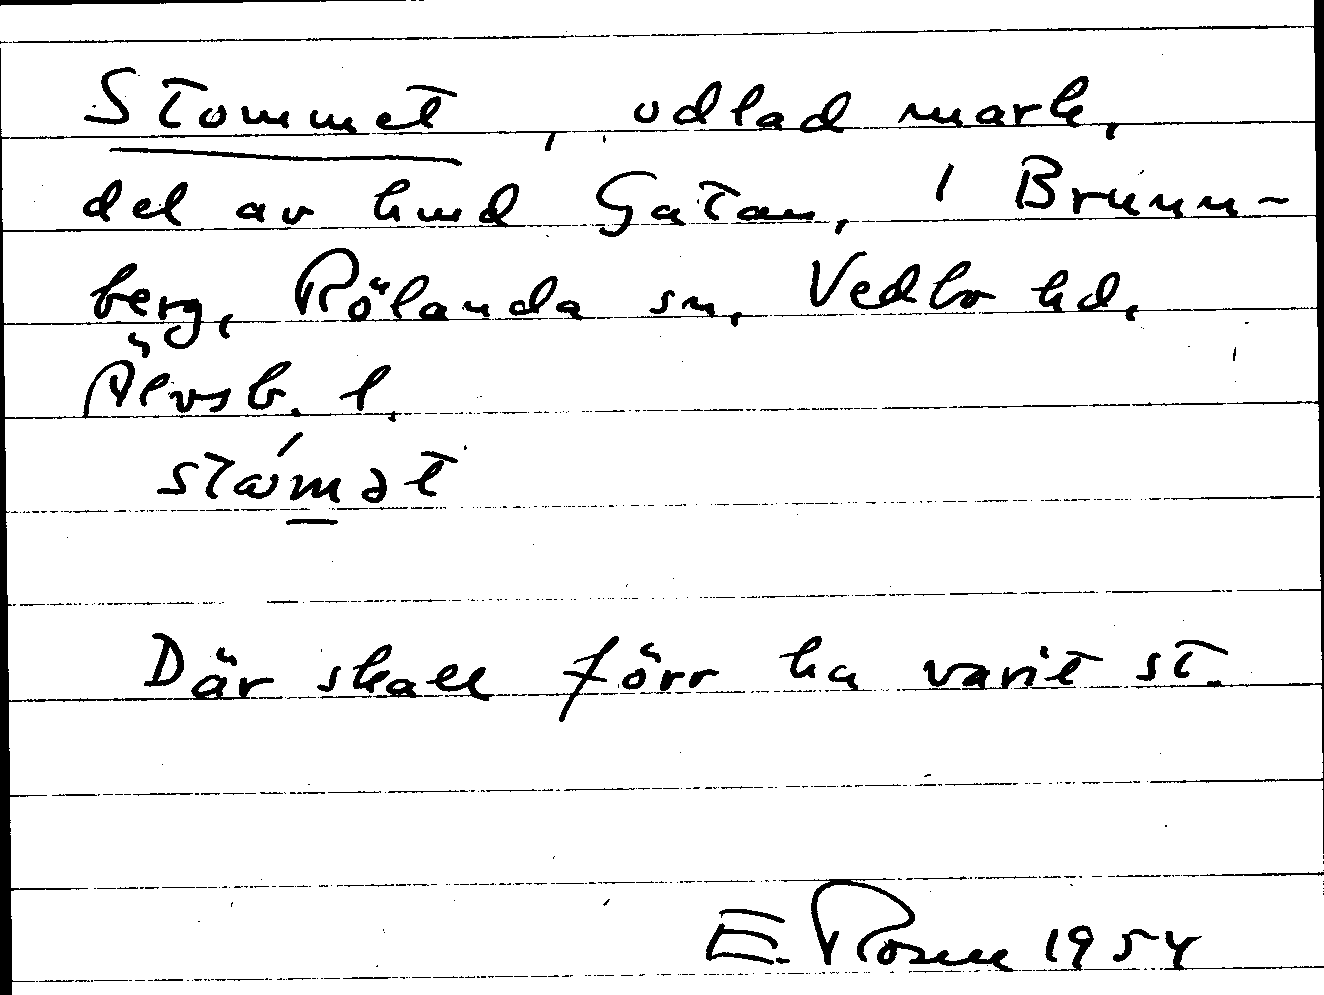 Stommet, odlad mark,
del av hmd Gatan, i Brunn-
berg, Rölanda sn, Vedbo hd,
Älvsb. l.
Där skall förr ha varit st.
E. Rosen 1954